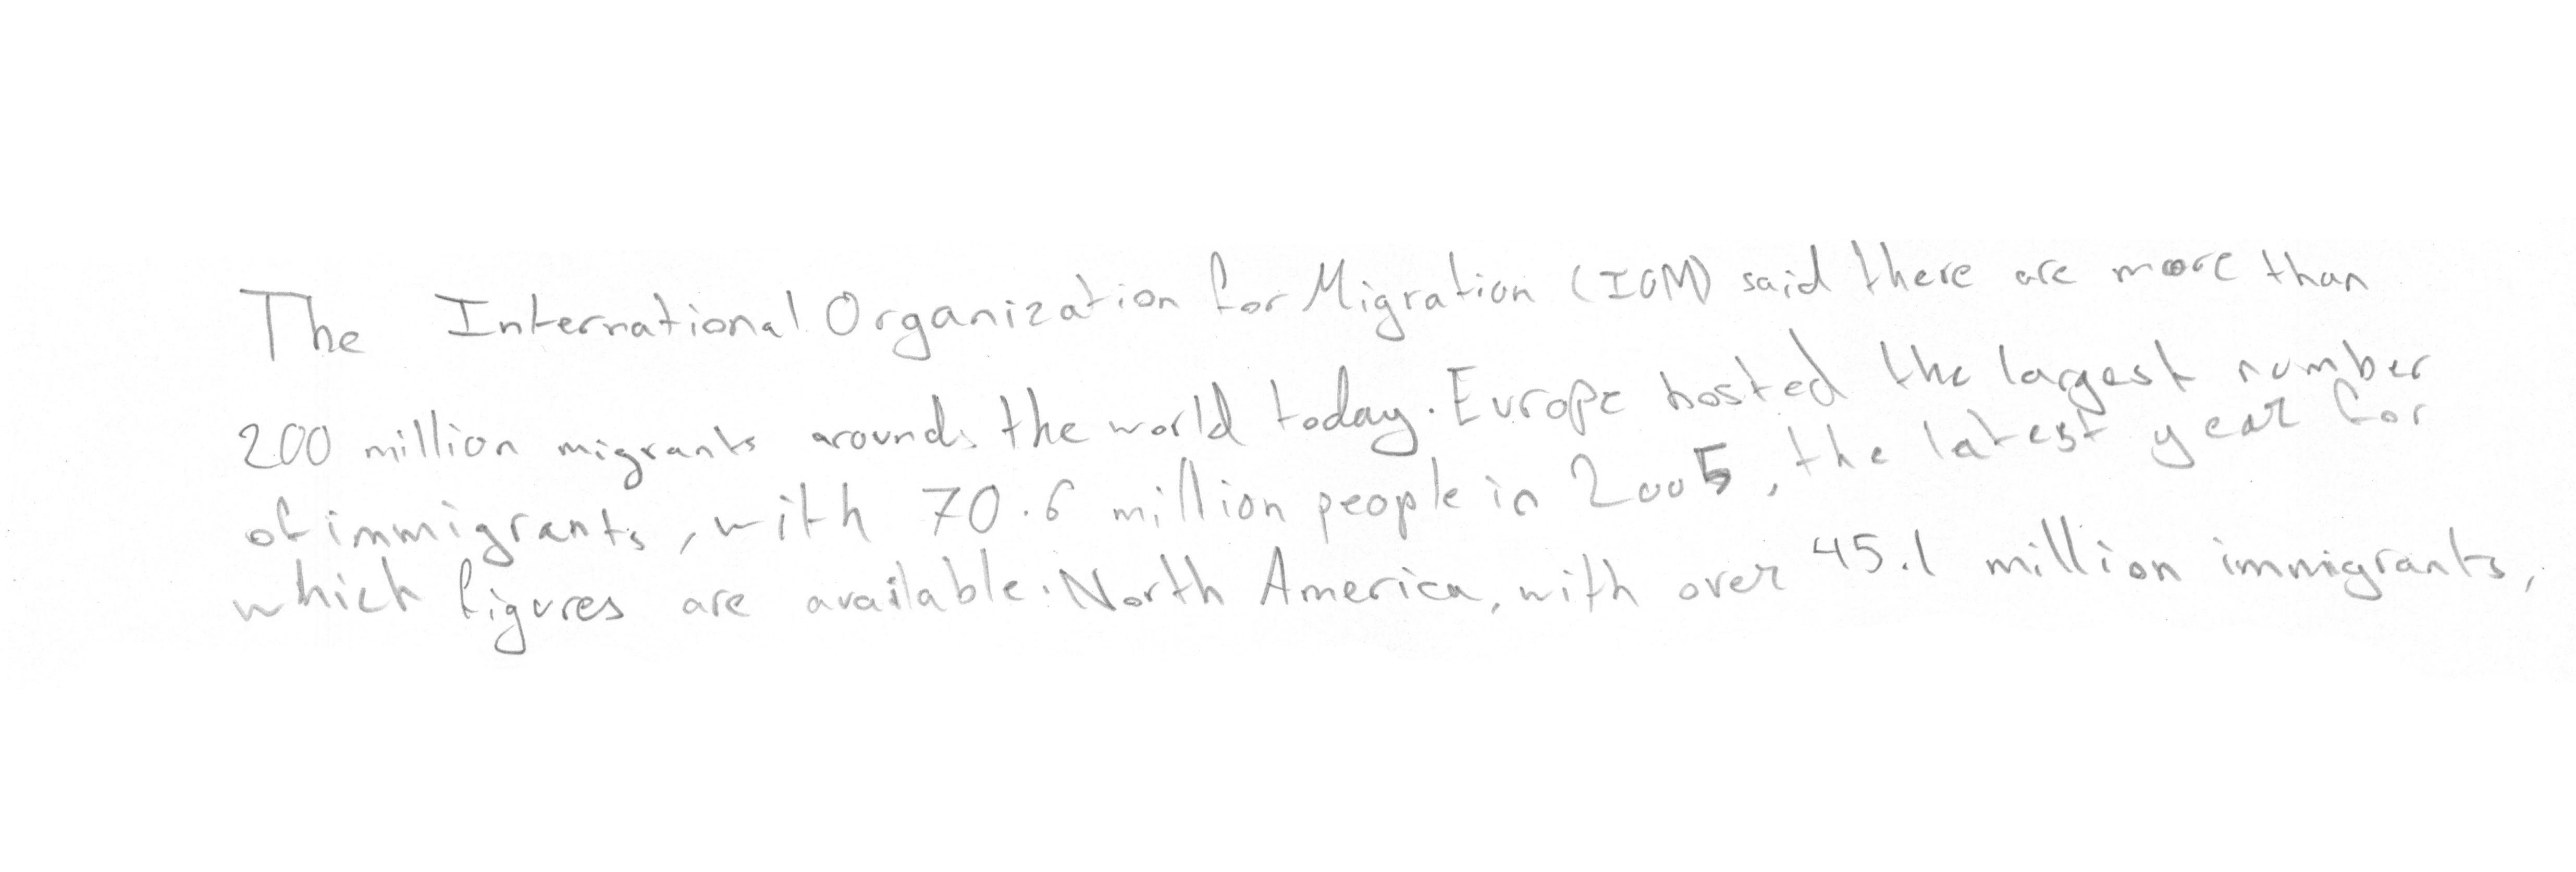 The International Organization for Migration (IOM) said there are more than
200 million migrants around the world today. Europe hosted the largest number
of immigrants, with 70.6 million people in 2005, the latest year for
which figures are available. North America, with over 45.1 million immigrants,